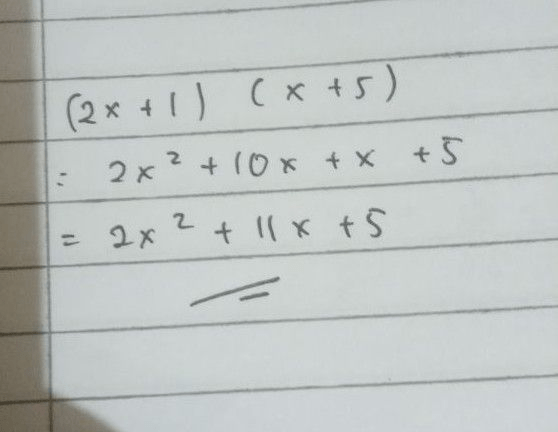 (2x + 1) (x + 5)
= 2x² + 10x + x + 5
= 2x² + 11x + 5